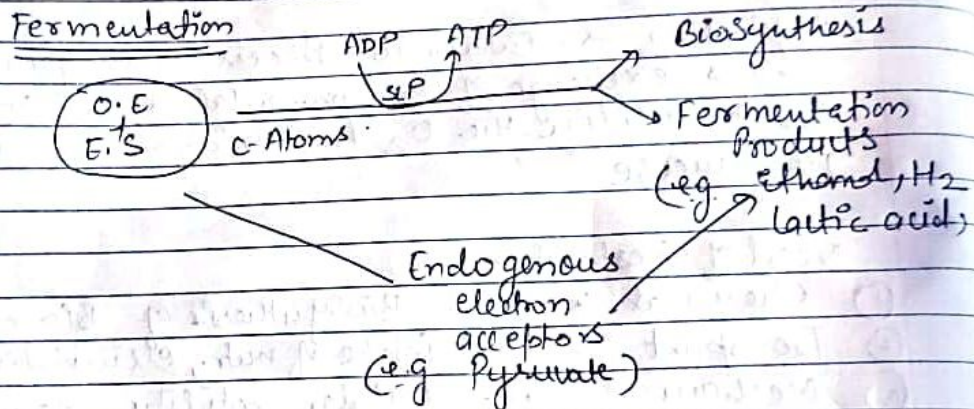 Fermentation
ADP ATP
SLP
Biosynthesis
O.E
+
E.S
C-Atoms
Fermentation
Products
(e.g. Ethanol, H2
lactic acid,
Endogenous
electron
acceptors
(e.g Pyruvate)